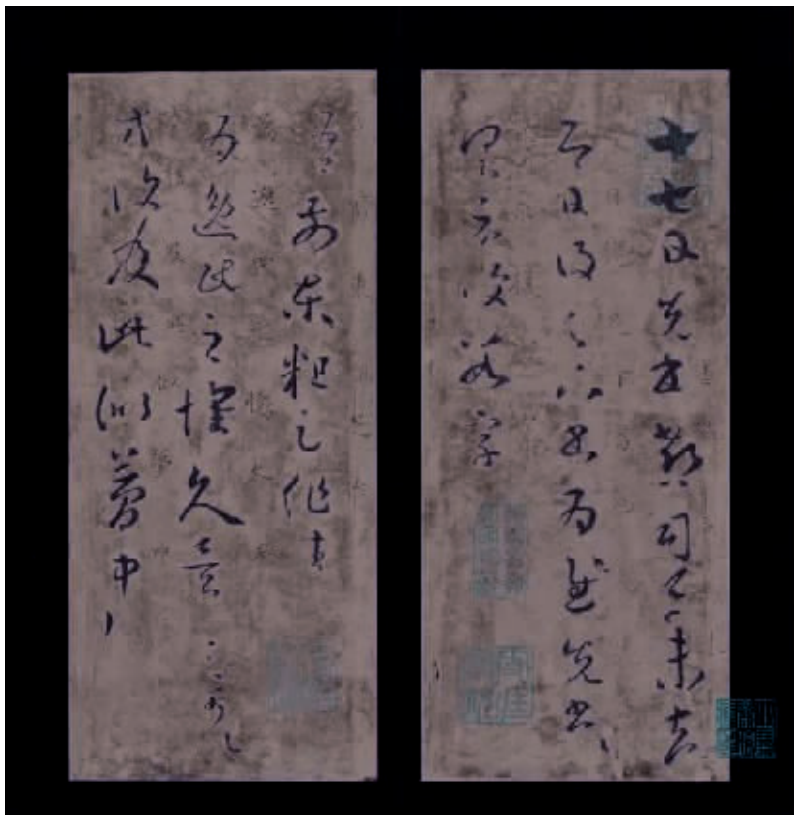 十七日先書郗司馬未去
即日得足下書為慰先書以
具示復數字
吾前東粗足作佳
為逸民之懷久矣足下何以
方復及此似夢中